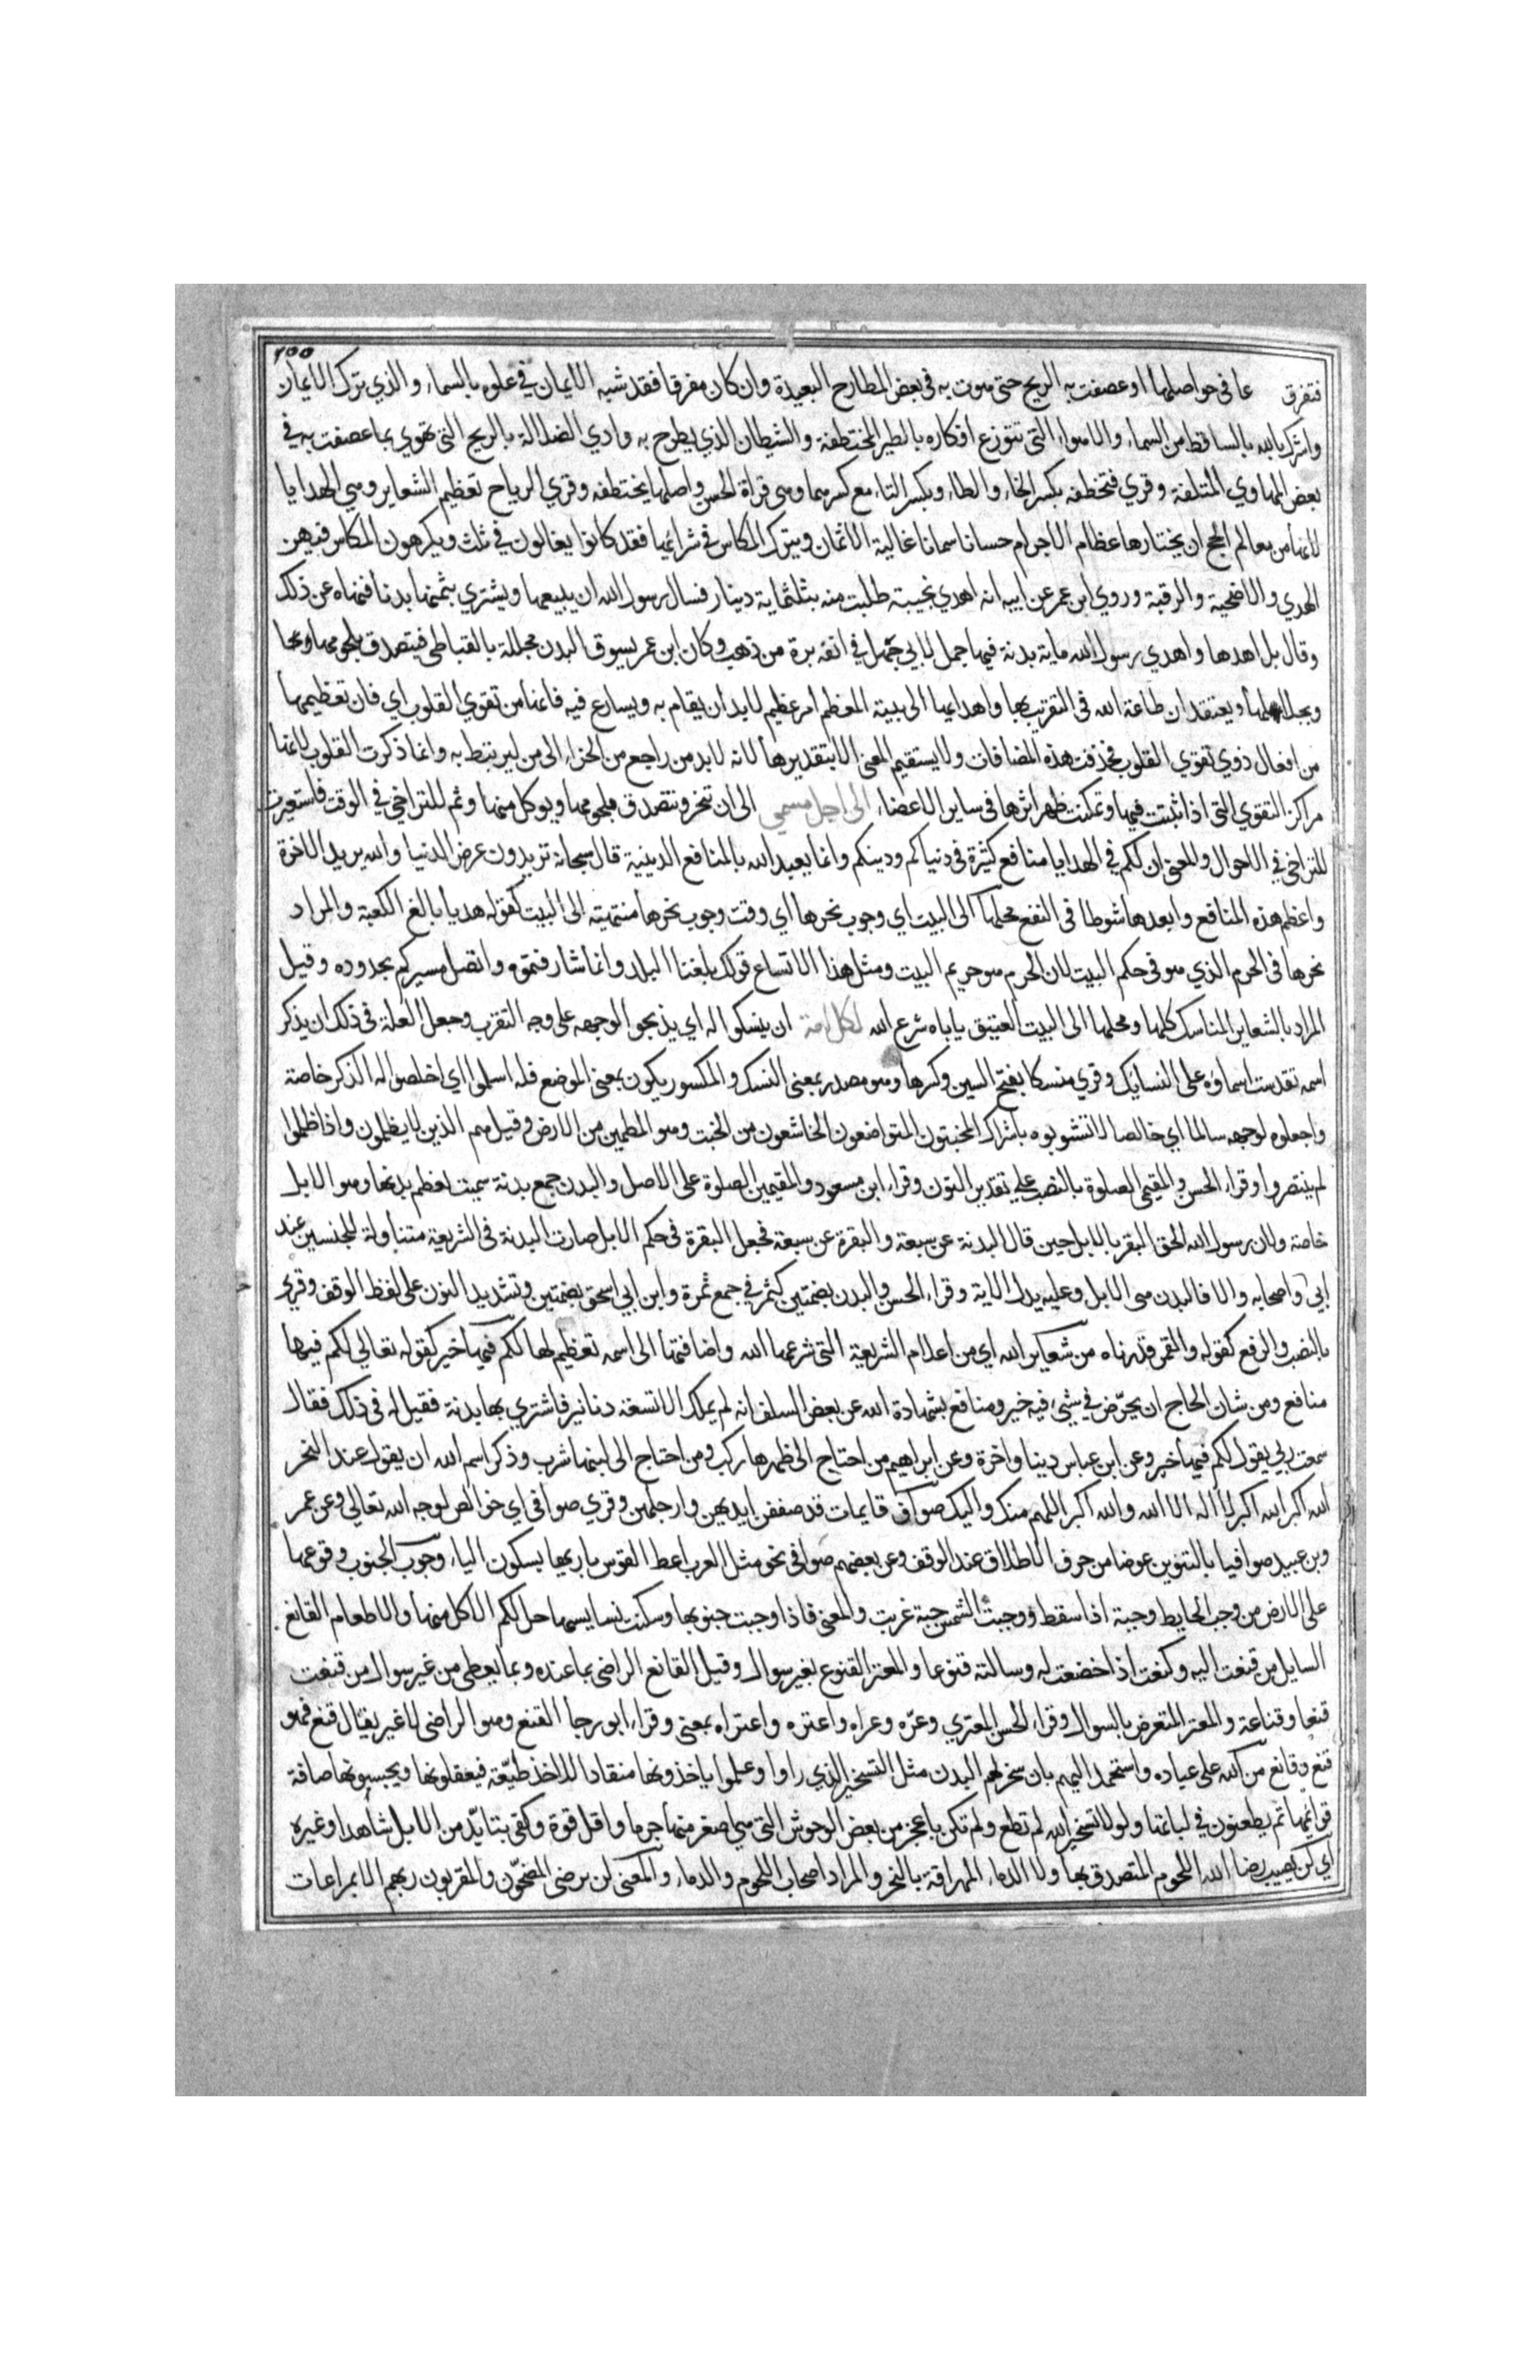 ١٥٥
فتفرق عا في حواصلها او عصفت به الريح حتى هوت به في بعض المطارح البعيدة وان كان مفرقا فقد شبه الايمان في علوه بالسماء والذي ترك الايمان
واشرك بالله بالساقط من السماء والاهواء التي تتوزع افكاره بالطير المختطفة والشيطان الذي يطوح به وادي الضلالة بالريح التي تهوي بما عصفت به في
بعض المهاوي المتلفة وقري فتخطفه بكسر الخاء والطاء وبكسر التاء مع كسرهما وهي قراة الحسن واصلها يختطفه وقري الرياح تعظيم الشعاير وهي الهدايا
لانها من معالم الحج ان يختارها عظام الاجرام حسانا سمانا غالية الاثمان ويترك المكاس في شرائها فقد كانوا يغالون في ثلث ويكرهون المكاس فيهن
الهدي والاضحية والرقبة وروي ابن عمر عن ابيه انه اهدي نجيبة طلبت منه بثلثماية دينار فسال رسول الله ان يبيعها ويشتري بثمنها بدنا فنهاه عن ذلك
وقال بل اهدها واهدي رسول الله ماية بدنة فيها جمل لابي جهل في انفه برة من ذهب وكان ابن عمر يسوق البدن مجللة بالقباطي فيتصدق بلحومها وبجلالها
ويعتقد ان طاعة الله في التقرب بها واهدايها الى بيته المعظم امر عظيم لابد ان يقام به ويسارع فيه فانها من تقوي القلوب اي فان تعظيمها
من افعال ذوي تقوي القلوب فحذفت هذه المضافات ولا يستقيم المعنى الا بتقديرها لانه لابد من راجع من الجزاء الى من ليرتبط به وانما ذكرت القلوب لانها
مراكز التقوي التي اذا ثبتت فيها وتمكنت ظهر اثرها في ساير الاعضاء الى اجل مسمي الى ان تنحر ونتصدق بلحومها ويوكل منها وثم للتراخي في الوقت فاستعيرت
للتراخي في الاحوال والمعنى ان لكم في الهدايا منافع كثيرة في دنياكم ودينكم وانما يعبد الله بالمنافع الدينية قال سبحانه تريدون عرض الدنيا والله يريد الاخرة
واعظم هذه المنافع وابعدها شوطا في النفع محلها الى البيت اي وجوب نحرها اي وقت وجوب نحرها منتهية الى البيت كقوله هديا بالغ الكعبة والمراد
نحرها في الحرم الذي هو في حكم البيت لان الحرم هو حريم البيت ومثل هذا الاتساع قولك بلغنا البلد وانما شارفتموه واتصل مسيركم بحدوده وقيل
المراد بالشعاير المناسك كلها ومحلها الى البيت العتيق ياباه شرع الله لكل امة ان ينسكوا له اي يذبحوا لوجهه على وجه التقرب وجعل العلة في ذلك ان يذكر
اسمه تقدست اسماؤه على النسايك وقري منسكا بفتح السين وكسرها وهو مصدر بمعنى النسك والمكسور يكون بمعنى الموضع فله اسلموا اي اخلصوا له الذكر خاصة
واجعلوه لوجهه سالما اي خالصا لا تشوبوه باشراك المخبتون المتواضعون الخاشعون من الخبت وهو المطمين من الارض وقيل هم الذين لا يظلمون واذا ظلموا
لم ينتصروا وقراء الحسن والمقيمي الصلوة بالنصب على تقدير النون وقراء ابن مسعود والمقيمين الصلوة على الاصل والبدن جمع بدنة سميت لعظم بدنها وهي الابل
خاصة ولان رسول الله الحق البقر بالابل حين قال البدنة عن سبعة والبقرة عن سبعة فجعل البقرة في حكم الابل صارت البدنة في الشريعة متناولة للجنسين عند
ابي واصحابه والا فالبدن هي الابل وعليه يدل الاية وقراء الحسن والبدن بضمتين كثمر في جمع ثمرة وابن ابي اسحق بضمتين وتشديد النون على لفظ الوقف وقري
بالنصب والرفع كقوله والقمر قدرناه من شعاير الله اي من اعلام الشريعة التي شرعها الله واضافتها الى اسمه تعظيم لها لكم فيها خير كقوله تعالي لكم فيها
منافع ومن شان الحاج ان يحرض في شيء فيه خير ومنافع بشهادة الله عن بعض السلف انه لم يملك الا تسعة دنانير فاشتري بها بدنة فقيل له في ذلك فقال
سمعت ربي يقول لكم فيها خير وعن ابن عباس دينا واخرة وعن ابراهيم من احتاج الى ظهرها ركب ومن احتاج الى لبنها شرب وذكر اسم الله ان يقول عند النحر
الله اكبر الله اكبر لا اله الا الله والله اكبر اللهم منك واليك صواف قايمات قد صففن ايديهن وارجلهن وقري صوافي اي خوالص لوجه الله تعالي وعن عمر
وبن عبيد صوافيا بالتنوين عوضا من حرف الاطلاق عند الوقف وعن بعضهم صوافي نحو مثل العرب اعط القوس باريها بسكون الياء وجوب الجنوب وقوعها
على الارض من وجب الحايط وجبة اذا سقط ووجبت الشمس جبة غربت والمعنى فاذا وجبت جنوبها وسكنت نسايسها حل لكم الاكل منها والاطعام القانع
السايل من قنعت اليه وكنعت اذا خضعت له وسالته قنوعا والمعتر القنوع بغير سوال وقيل القانع الراضي بما عنده وبما يعطي من غير سوال من قنعت
قنعا وقناعة والمعتر المتعرض بالسوال وقراء الحسن المعتري وعره وعراه واعتره واعتراه بمعنى وقراء ابو رجا القنع وهو الراضي لا غير يقال قنع فهو
قنع وقانع من الله على عباده واستحمد اليهم بان سخر لهم البدن مثل التسخير الذي راوا وعلموا ياخذونها منقادا للاخذ طيعة فيعقلونها ويحبسونها صافة
قوايمها ثم يطعنون في لباتها ولولا تسخير الله لم تطع ولم تكن باعجز من بعض الوحوش التي هي اصغر منها جرما واقل قوة وكفى بتأبد من الابل شاهدا وغيره
اي لن يصيب رضا الله اللحوم المتصدق بها ولا الدماء المهراقة بالنحر والمراد اصحاب اللحوم والدماء والمعنى لن يرضى المضحون والمقربون ربهم الا بمراعات